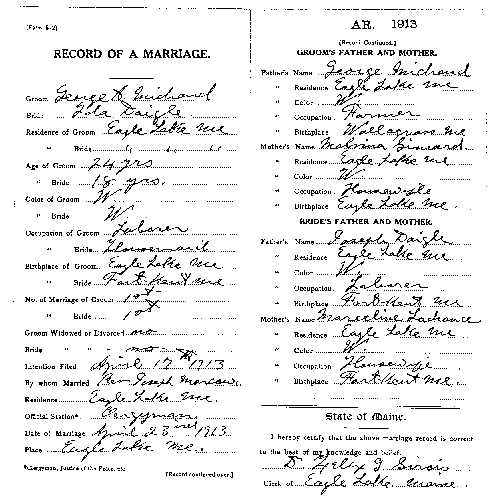 [Form S-2]
RECORD OF A MARRIAGE.
Groom George A Michaud
Bride Ida Daigle
Residence of Groom Eagle Lake Me
" Bride " " "
Age of Groom 24 yrs
" Bride 18 yrs.
Color of Groom W
" Bride W
Occupation of Groom Laborer
" Bride Housemaid
Birthplace of Groom Eagle Lake Me
" Bride Fort Kent Me
No. of Marriage of Groom 1st
" Bride 1st
Groom Widowed or Divorced no
Bride " " " no
Intention Filed April 17th 1913
By whom Married Rev Joseph Marcoux
Residence Eagle Lake Me.
Official Station* Clergyman
Date of Marriage April 23 1913
Place Eagle Lake Me.
*Clergyman, Justice of the Peace, etc.
[Record continued over.]
AR. 1913
[Record Continued.]
GROOM'S FATHER AND MOTHER.
Father's Name George Michaud
" Residence Eagle Lake Me
" Color W.
" Occupation Farmer
" Birthplace Wallagrass Me
Mother's Name Malvina
" Residence Eagle Lake Me
" Color W
" Occupation Housewife
" Birthplace Eagle Lake Me.
BRIDE'S FATHER AND MOTHER.
Father's Name Joseph Daigle
" Residence Eagle Lake Me.
" Color W.
" Occupation Laborer
" Birthplace Fort Kent Me
Mother's Name Marceline Lachance
" Residence Eagle Lake Me.
" Color W.
" Occupation Housewife
" Birthplace Fort Kent Me.
State of Maine.
I hereby certify that the above marriage record is correct
to the best of my knowledge and belief.
D Felix J Sirois
Clerk of Eagle Lake, Maine.